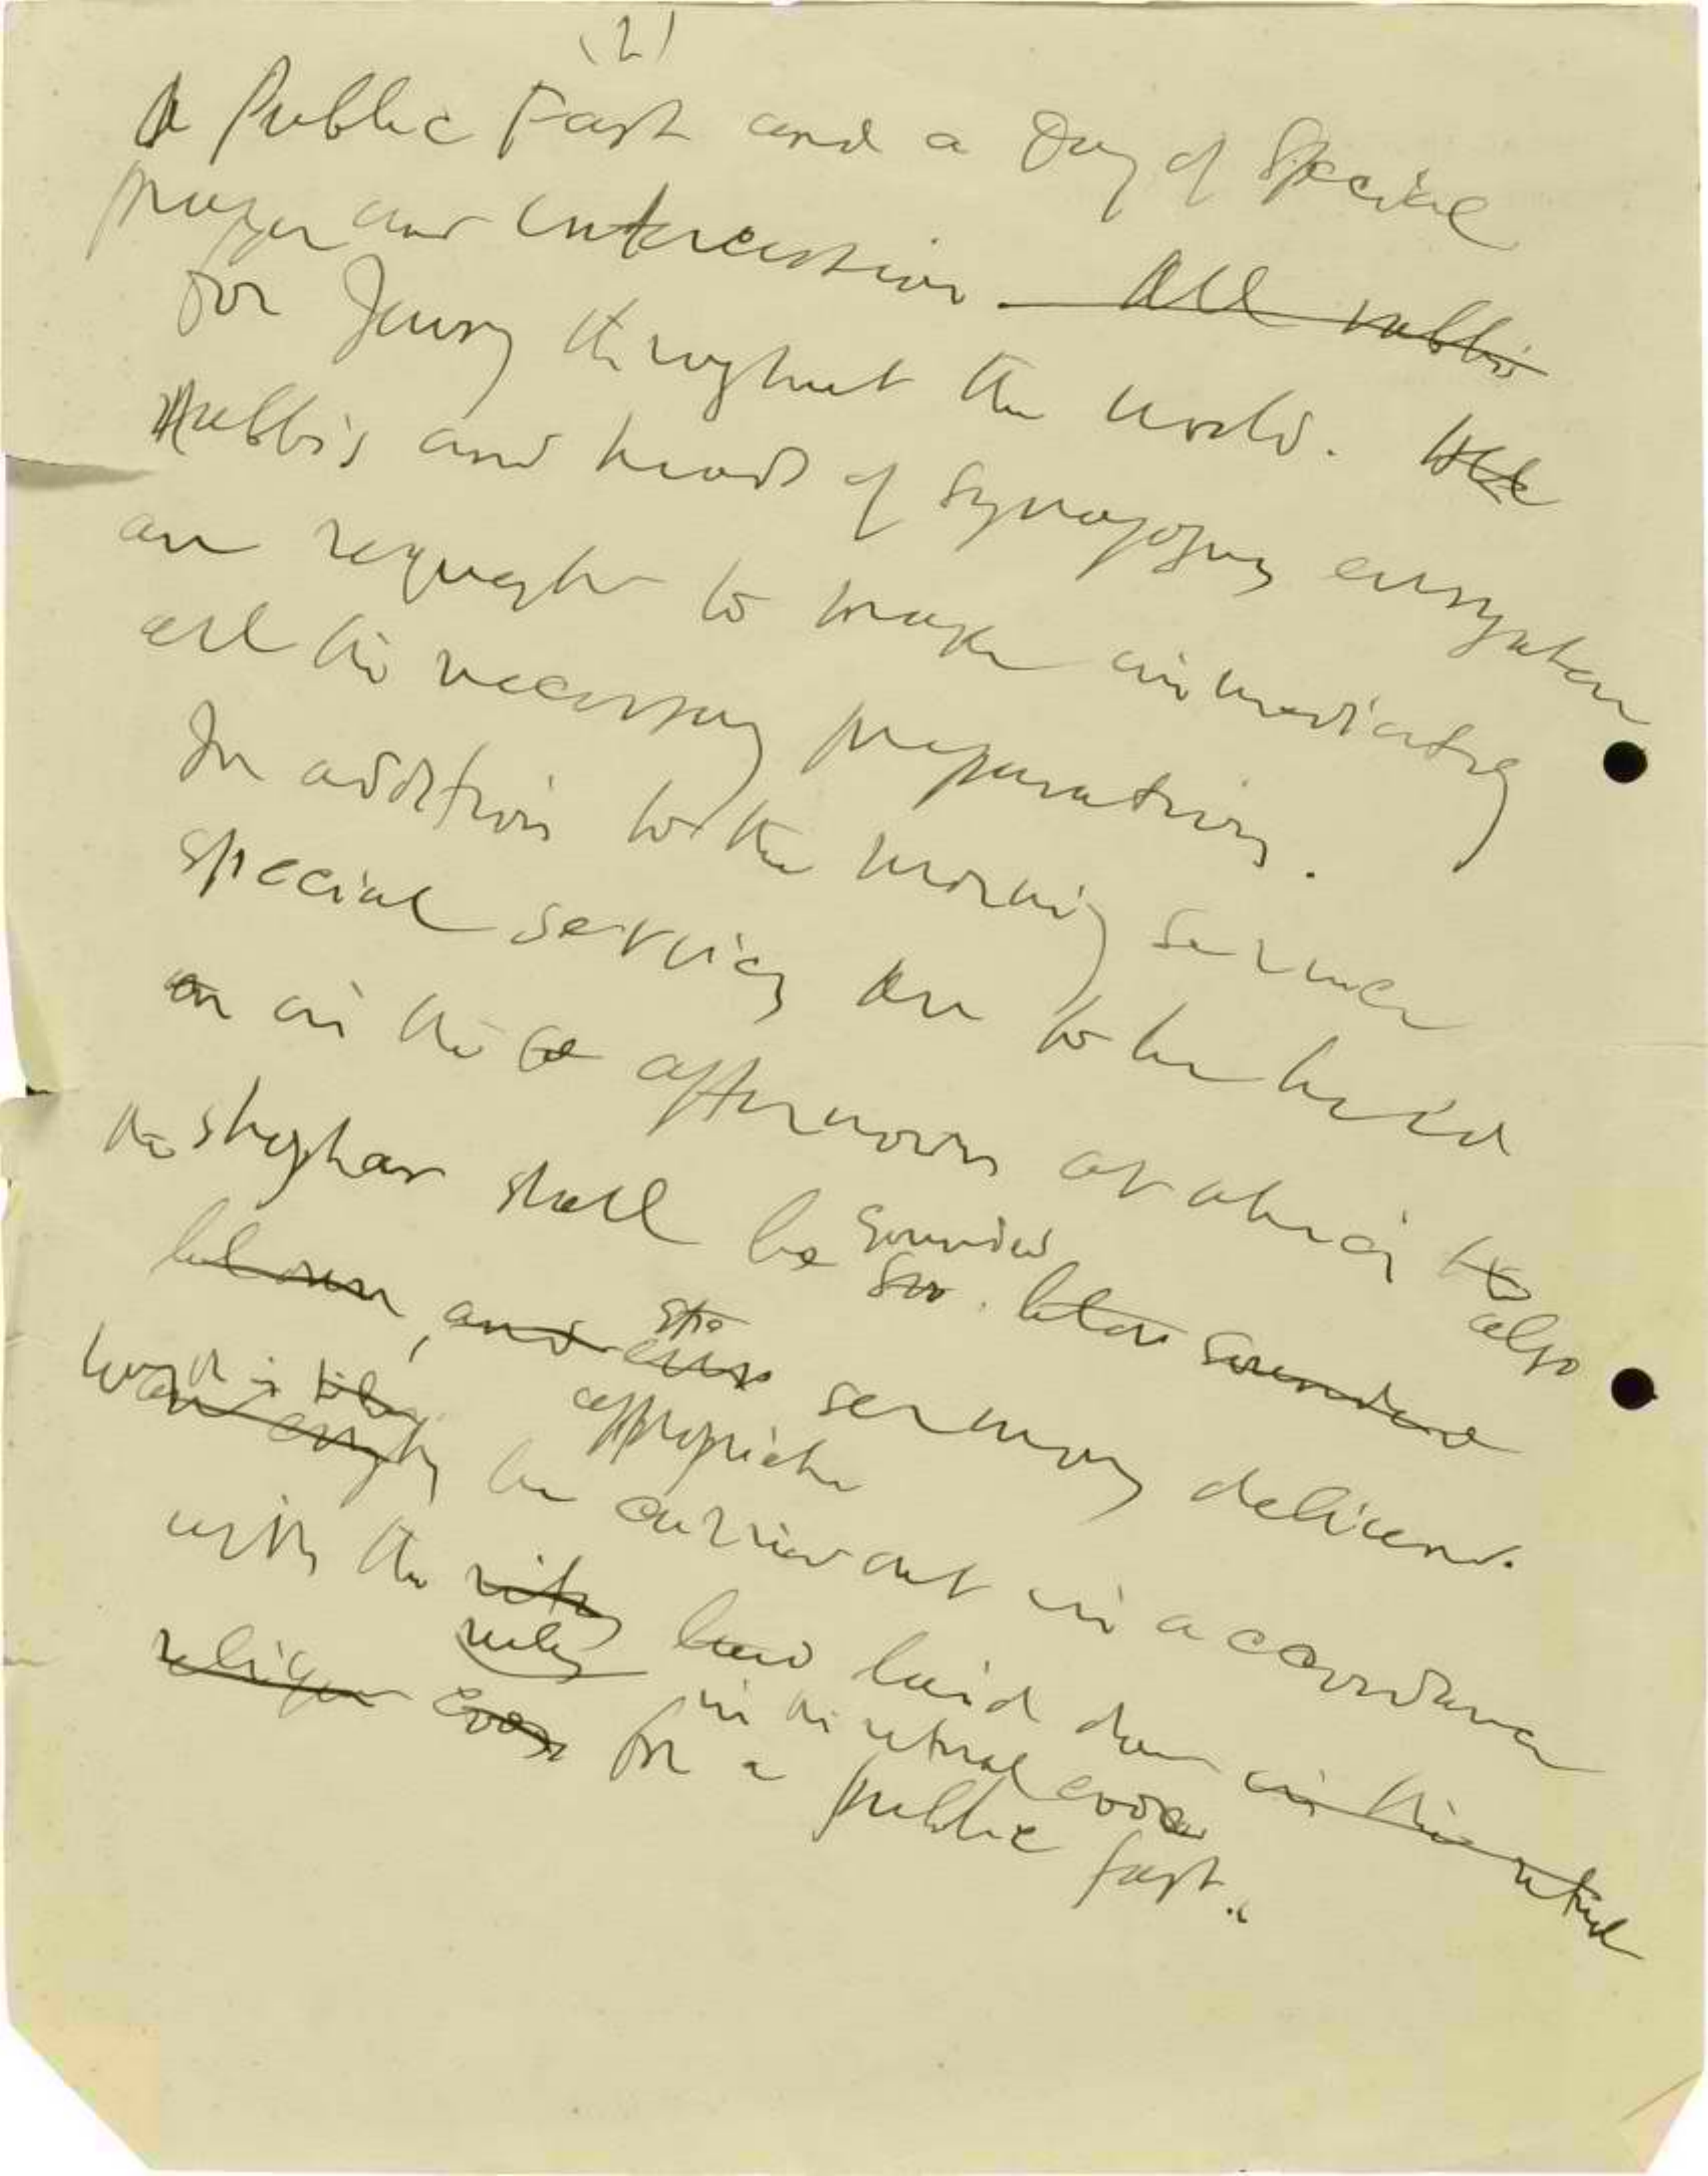 (2)
A Public Fast and a Day of Special
prayer and intercession All rabbis
for Jewry throughout the world. All
Rabbis and heads of Synagogues everywhere
are requested to make immediately
all the necessary preparations.
In addition to the morning service
special services are to be held
on in the afternoon at which the
the shophar shall be sounded also
blown, and sermons delivered.
appropriate
be carried out in accordance
with the rites law laid down in the ritual
rules in the ritual code
religious code for a public fast."